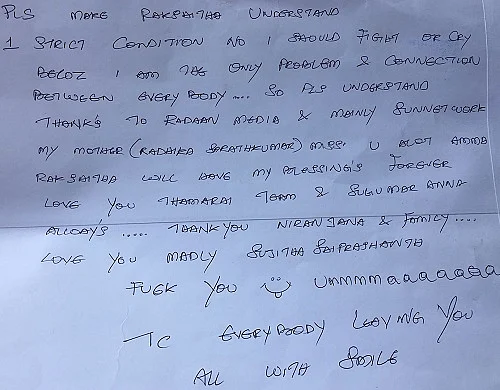 PLS MAKE RAKSAITHA UNDERSTAND
1 STRICT CONDITION NO 1 SHOULD FIGHT OR CRY
BECOZ I AM THE ONLY PROBLEM & CONNECTION
BETWEEN EVERYBODY.... SO PLS UNDERSTAND
THANKS TO RADAAN MEDIA & MAINLY SUNNETWORK
MY MOTHER (RADHIKA SARATHKUMAR) MISS U ALOT AMMA
RAKSAITHA WILL HAVE MY BLESSING'S FOREVER
LOVE YOU THAMARAI TEAM & SUGUMAR ANNA
ALLDAYS ..... THANKYOU NIRANJANA & FAMILY....
LOVE YOU MADLY SUJITHA SAIPRASHANTH
FUCK YOU ummmmaaaaaaa
TC EVERYBODY LEAVING YOU
ALL WITH SMILE